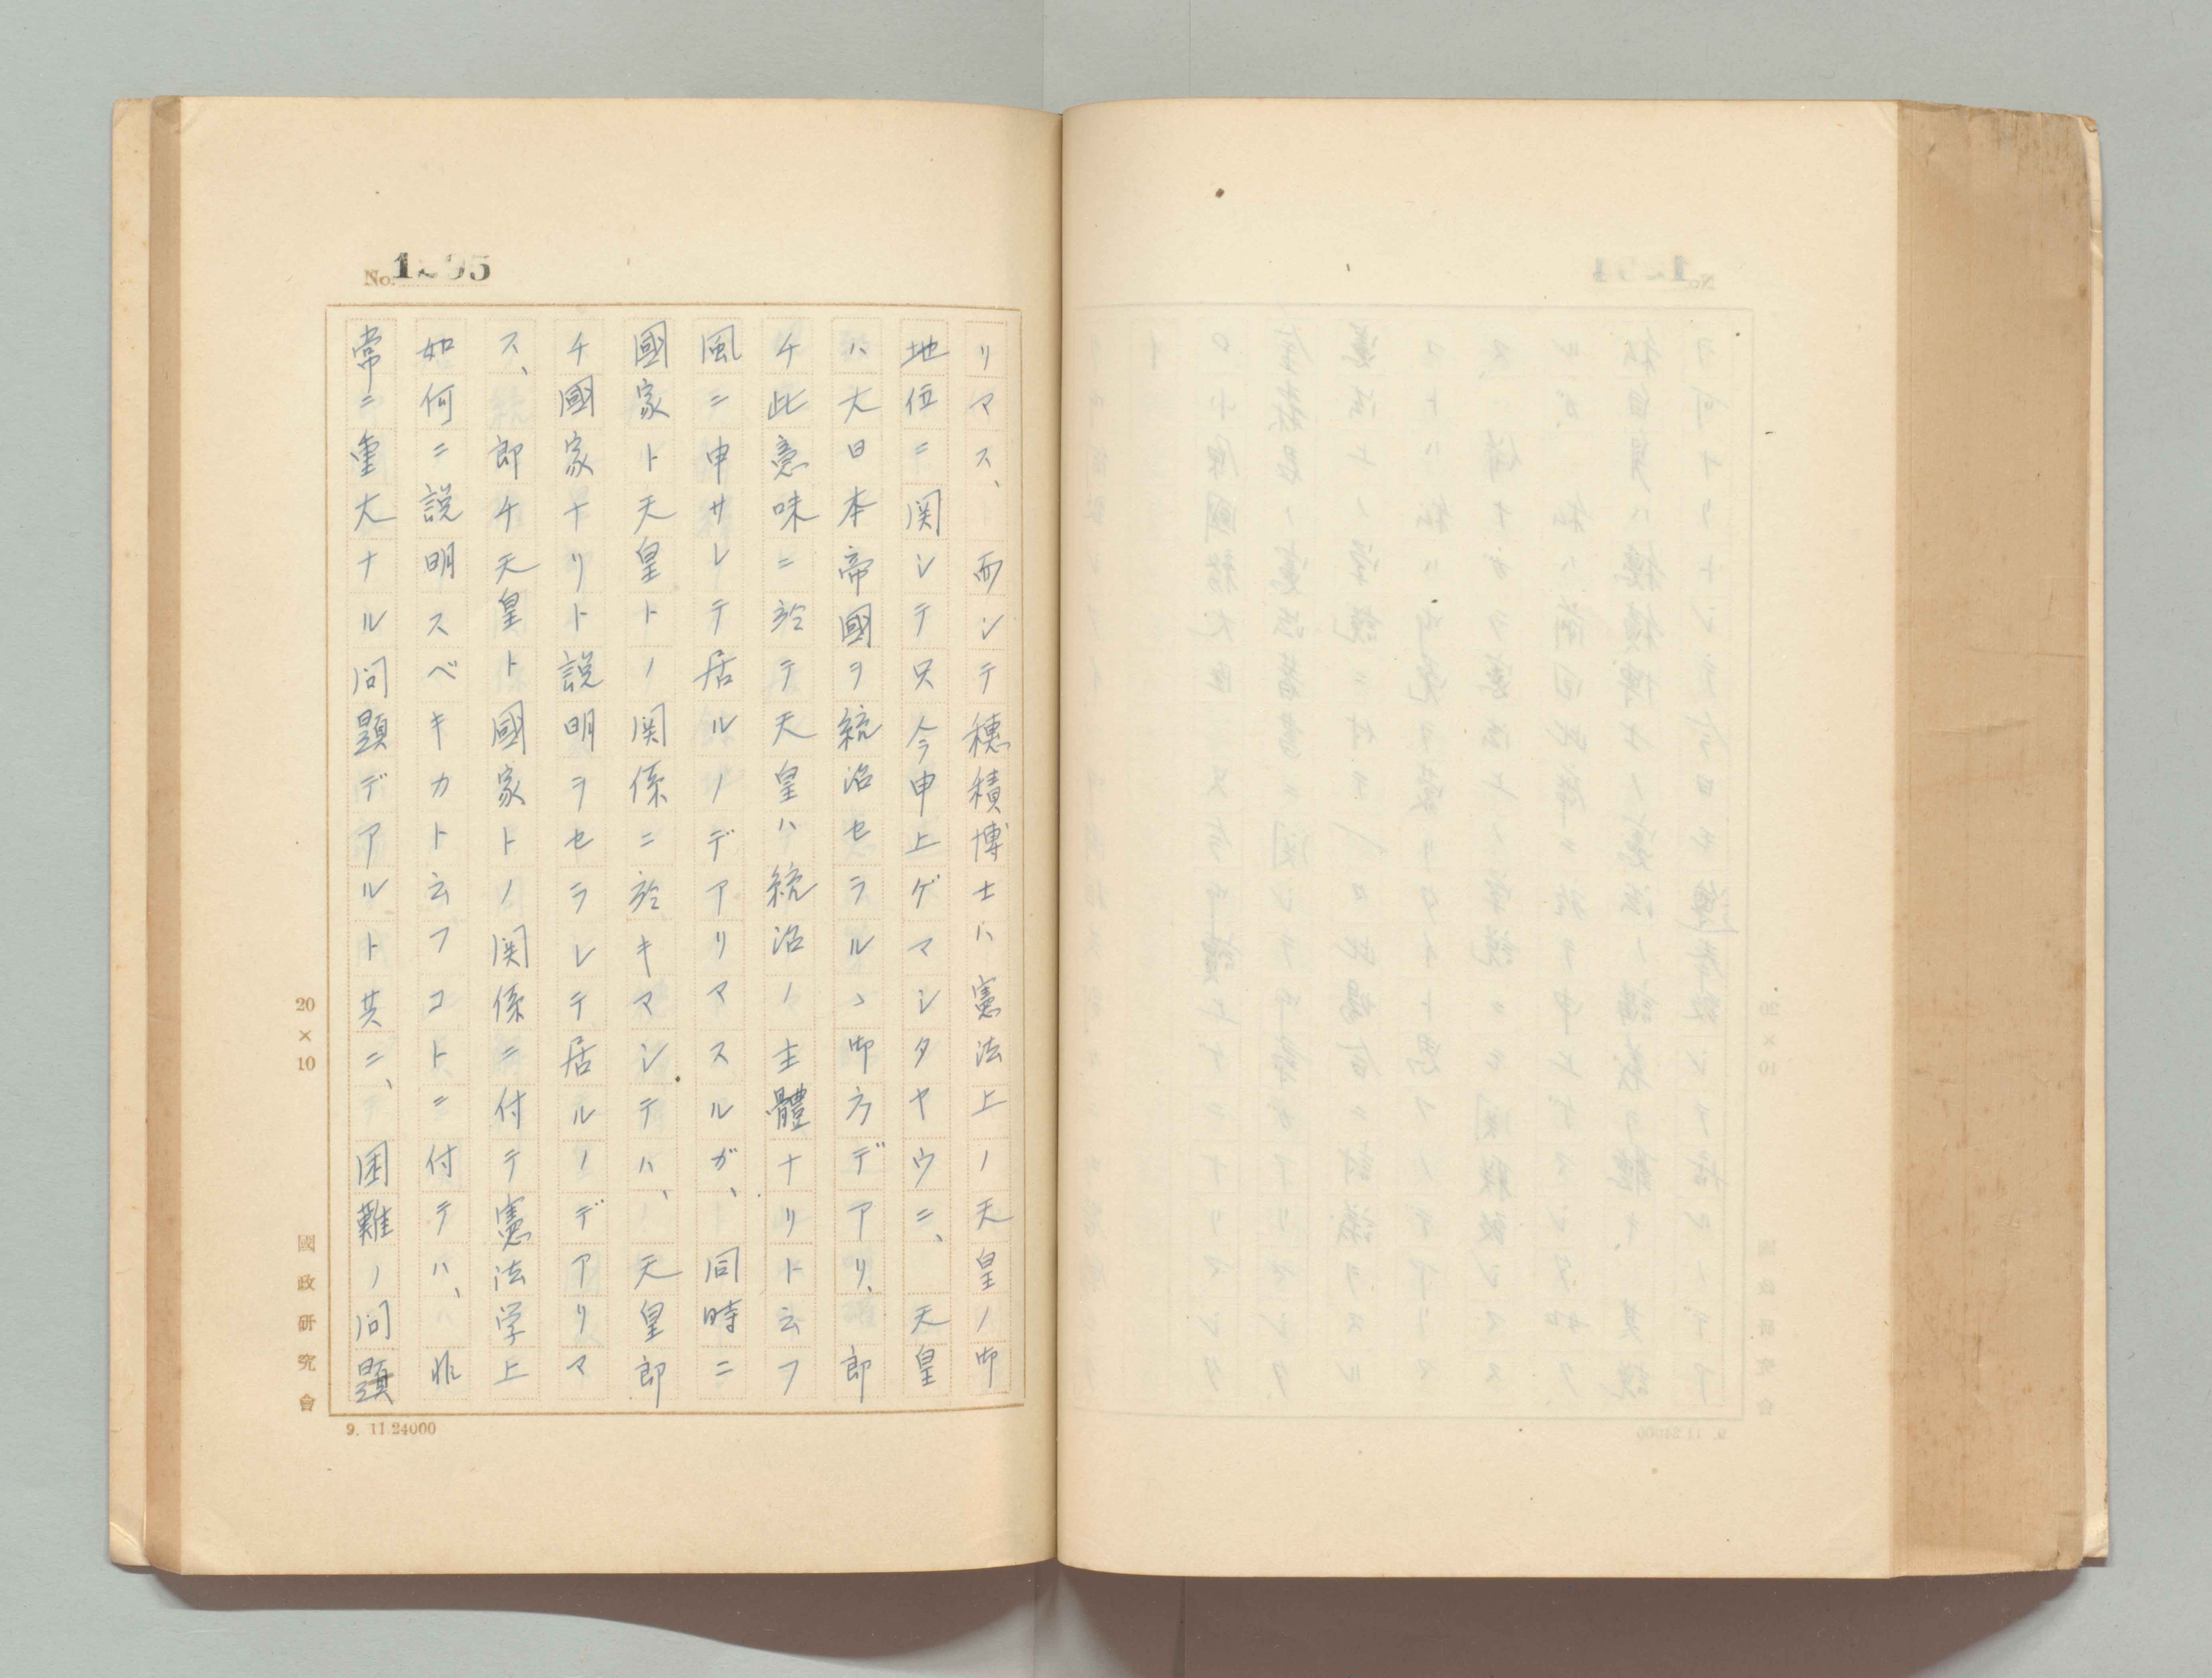 No.1295
リマス、而シテ穗積博士ハ憲法上ノ天皇ノ御
地位ニ関シテ只今申上ゲマシタヤウニ、天皇
ハ大日本帝國ヲ統治セラルヽ御方デアリ、即
チ此意味ニ於テ天皇ハ統治ノ主體ナリト云フ
風ニ申サレテ居ルノデアリマスルガ、同時ニ
國家ト天皇トノ関係ニ於キマシテハ、天皇即
チ國家ナリト説明ヲセラレテ居ルノデアリマ
ス、即チ天皇ト國家トノ関係ニ付テ憲法学上
如何ニ説明スベキカト云フコトニ付テハ、非
常ニ重大ナル問題デアルト共ニ、困難ノ問題
20×10
國政研究會
9. 11.24000